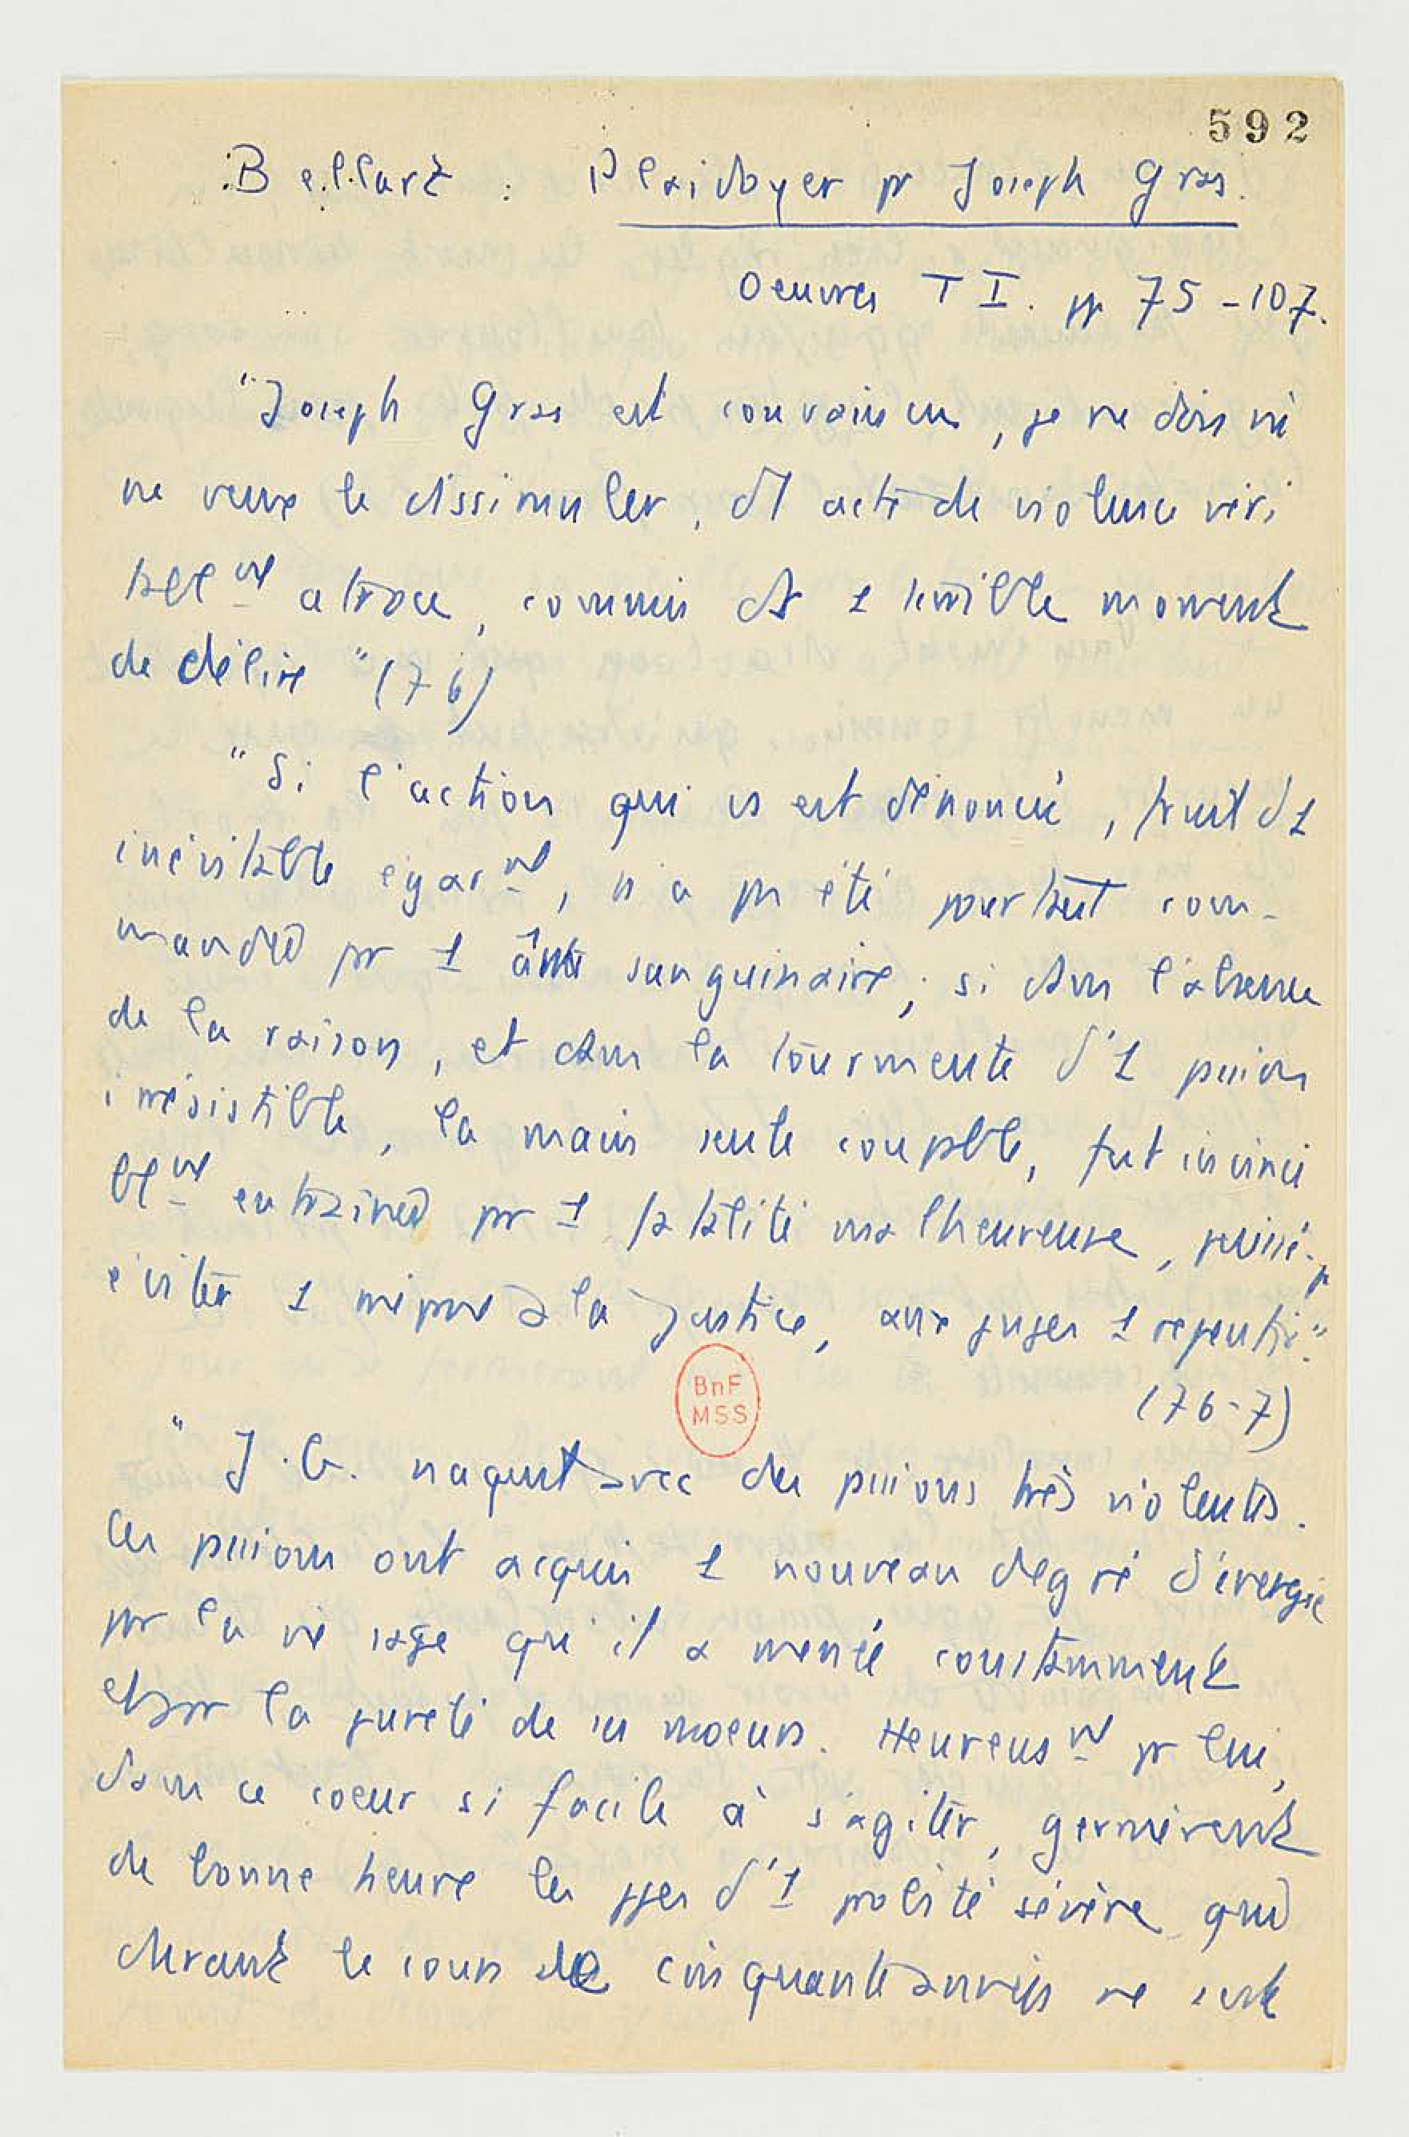 592
Bellart : Plaidoyer pr Joseph Gras.
Oeuvres T I. pp 75-107.
"Joseph Gras est convaincu, je ne dois ni
ne veux le dissimuler, d'1 acte de violence véri
tablmt atroce, commis ds 1 terrible moment
de délire" (76)
"Si l'action qui vs est dénoncée, fruit d1
inévitable égarmt, n'a pr été pourtant com-
mandée pr 1 âme sanguinaire; si dans l'absence
de la raison, et dans la tourmente d'1 passion
irrésistible, la main seule couplble, fut invinci
blmt entraînée pr 1 fatalité malheureuse, puissé-je
éviter 1 méprise à la Justice, aux juges 1 repentir."
(76-7)
BnF
MSS
"J.G. naquit avec des passions très violentes.
Ces passions ont acquis 1 nouveau degré d'énergie
pr la vie sage qu'il a menée constamment
et pr la pureté de ses moeurs. Heureusmt pr lui,
dans ce coeur si facile à s'agiter, germèrent
de bonne heure les ppes d'1 probité sévère que
durant le cours de cinquante années ne